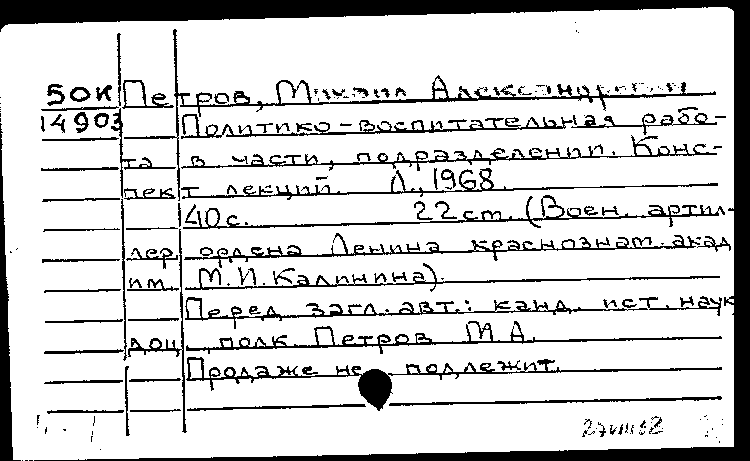 50К Петров, Михаил Александрович
14903 Политико-воспитательная рабо-
та в части, подразделении. Конс-
пект лекций. Л., 1968.
40с. 22 cm. (Воен. артил-
лер. ордена Ленина краснознам. акад
им. М.И. Калинина).
Перед загл. авт.: канд. ист. наук
доц. полк. Петров М.А.
Продаже не подлежит.